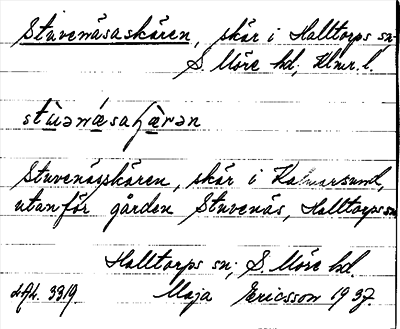 Stuvenäsaskären, skär i Halltorps sn.
S. Möre hd, Klmr. l.
Stuvenäsaskären, skär i Kalmarsund,
utanför gården Stuvenäs, Halltorps sn.
Halltorps sn; S. Möre hd.
3319. Maja Ericsson 1937.